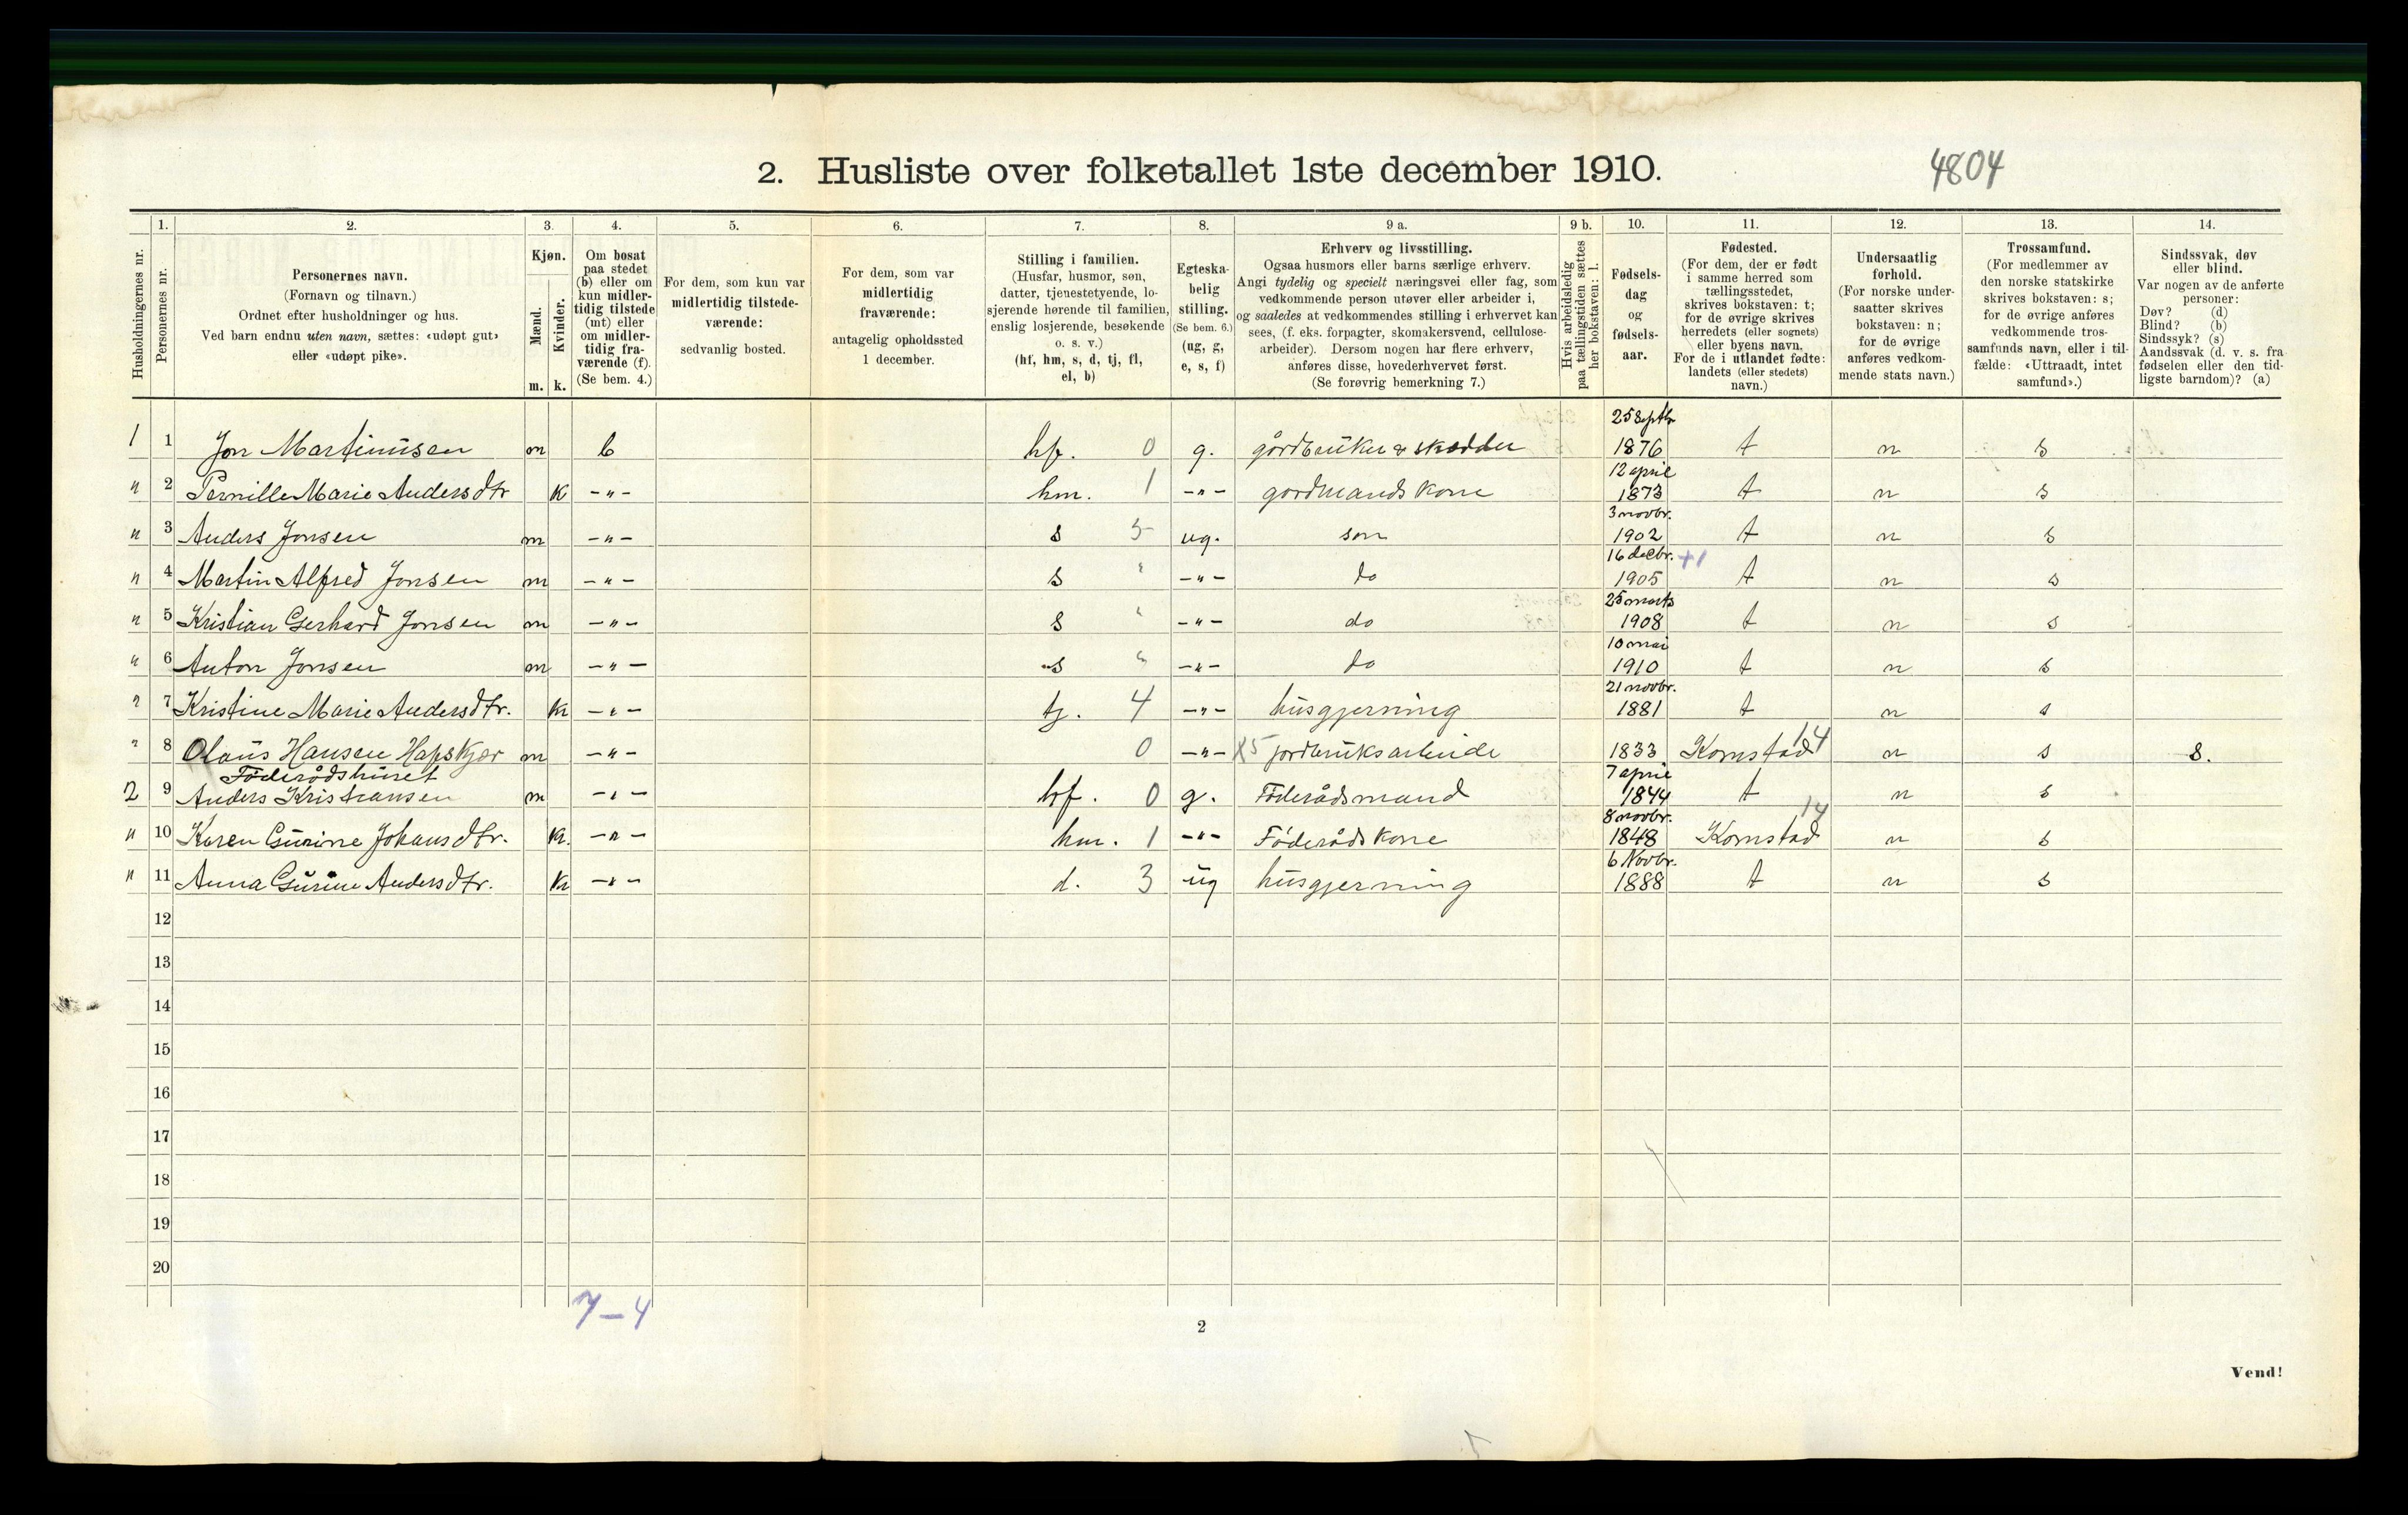 2. Husliste over folketallet 1ste december 1910.
4804
Husholdningernes nr.
1. Personernes nr.
2. Personernes navn.
(Fornavn og tilnavn.)
Ordnet efter husholdninger og hus.
Ved barn endnu uten navn, sættes: «udøpt gut»
eller «udøpt pike».
3. Kjøn.
Mænd. m.
Kvinder. k.
4. Om bosat
paa stedet
(b) eller om
kun midler-
tidig tilstede
(mt) eller
om midler-
tidig fra-
værende (f).
(Se bem. 4.)
5. For dem, som kun var
midlertidig tilstede-
værende:
sedvanlig bosted.
6. For dem, som var
midlertidig
fraværende:
antagelig opholdssted
1 december.
7. Stilling i familien.
(Husfar, husmor, søn,
datter, tjenestetyende, lo-
sjerende hørende til familien,
enslig losjerende, besøkende
o. s. v.)
(hf, hm, s, d, tj, fl,
el, b)
8. Egteska-
belig
stilling.
(Se bem. 6.)
(ug, g,
e, s, f)
9 a. Erhverv og livsstilling.
Ogsaa husmors eller barns særlige erhverv.
Angi tydelig og specielt næringsvei eller fag, som
vedkommende person utøver eller arbeider i,
og saaledes at vedkommendes stilling i erhvervet kan
sees, (f. eks. forpagter, skomakersvend, cellulose-
arbeider). Dersom nogen har flere erhverv,
anføres disse, hovederhvervet først.
(Se forøvrig bemerkning 7.)
9 b. Hvis arbeidsledig
paa tællingstiden sættes
her bokstaven: l.
10. Fødsels-
dag
og
fødsels-
aar.
11. Fødested.
(For dem, der er født
i samme herred som
tællingsstedet,
skrives bokstaven: t;
for de øvrige skrives
herredets (eller sognets)
eller byens navn.
For de i utlandet fødte:
landets (eller stedets)
navn.)
12. Undersaatlig
forhold.
(For norske under-
saatter skrives
bokstaven: n;
for de øvrige
anføres vedkom-
mende stats navn.)
13. Trossamfund.
(For medlemmer av
den norske statskirke
skrives bokstaven: s;
for de øvrige anføres
vedkommende tros-
samfunds navn, eller i til-
fælde: «Uttraadt, intet
samfund».)
14. Sindssvak, døv
eller blind.
Var nogen av de anførte
personer:
Døv? (d)
Blind? (b)
Sindssyk? (s)
Aandssvak (d. v. s. fra
fødselen eller den tid-
ligste barndom)? (a)
1 1 Jon Martinusen m b hf. 0 g. gårdbruker & skrædder 25 Septbr 1876 t n s
" 2 Pernille Marie Andersdtr k -"- hm. 1 -"- gordmands kone 12 april 1873 t n s
" 3 Anders Jonsen m -"- s 5 ug. søn 3 novbr. 1902 t n s
" 4 Martin Alfred Jonsen m -"- s " -"- do 16 decbr. 1905 +1 t n s
" 5 Kristian Gerhard Jonsen m -"- s " -"- do 25 marts 1908 t n s
" 6 Anton Jonsen m -"- s " -"- do 10 mai 1910 t n s
" 7 Kristine Marie Andersdtr. k -"- tj. 4 -"- husgjerning 21 novbr. 1881 t n s
" 8 Olaus Hansen Hapskjær m -"- 0 -"- X5 jordbruksarbeide 1833 Kornstad 14 n s S.
Föderådshuset
2 9 Anders Kristiansen m -"- hf. 0 g. Föderådsmand 7 april 1844 t n s
" 10 Karen Gurine Johansdtr. k. -"- hm. 1 -"- Föderådskone 8 novbr. 1848 Kornstad 14 n s
" 11 Anna Gurine Andersdtr. k -"- d. 3 ug husgjerning 6 Novbr. 1888 t n s
12
13
14
15
16
17
18
19
20
7-4
2
Vend!